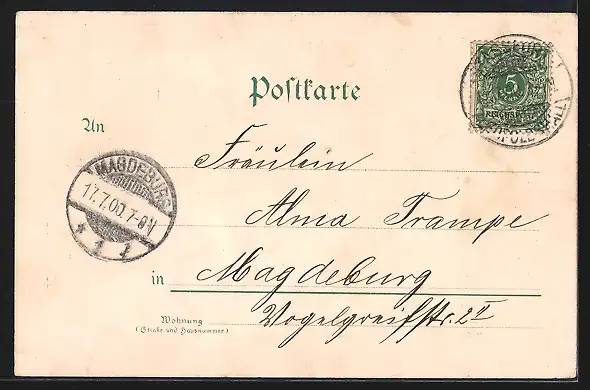 Postkarte
5
REICHSPOST
An
MAGDEBURG
17.7.00.7-8V
* 1 f
Fräulein
Alma Trampe
in Magdeburg
Wohnung
(Straße und Hausnummer)
Vogelgreifstr. 2 II